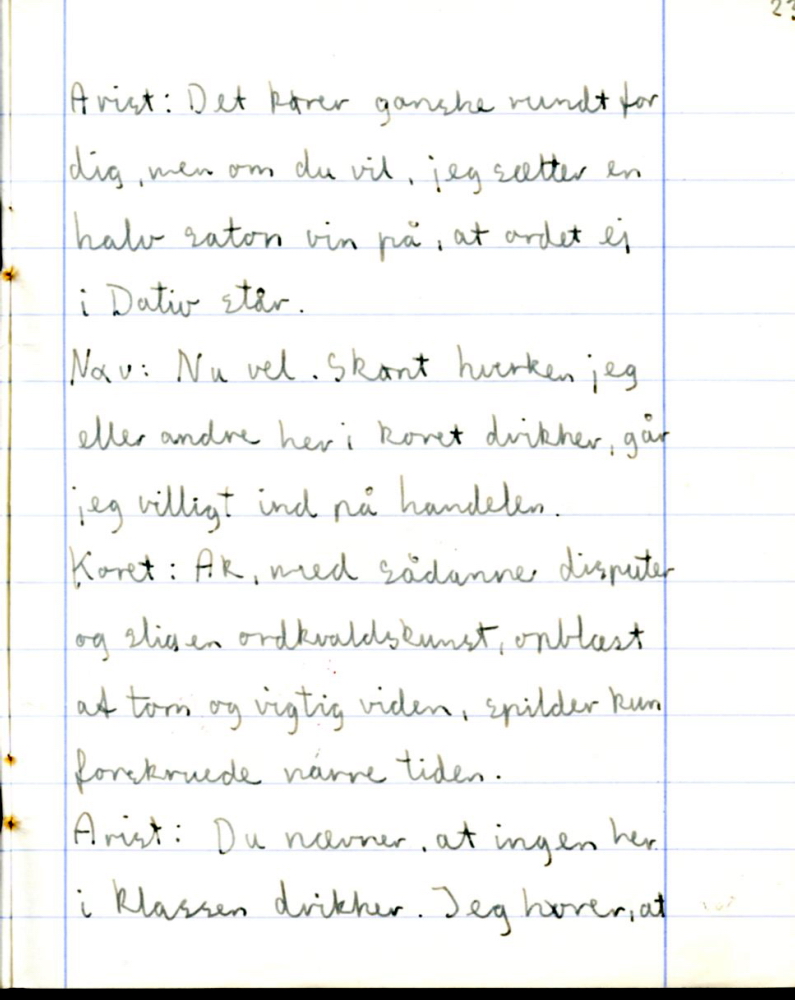 23
Arist: Det kører ganske rundt for
dig, men om du vil, jeg sætter en
halv saton vin på, at ordet ej
i Dativ står.
Nav: Nu vel. Skønt hverken jeg
eller andre her i koret drikker, går
jeg villigt ind på handelen.
Koret: Ak, med sådanne disputer
og slig en ordkvaldskunst, opblæst
af tom og vigtig viden, spilder kun
forskruede narre tiden.
Arist: Du nævner, at ingen her
i klassen drikker. Jeg hører, at